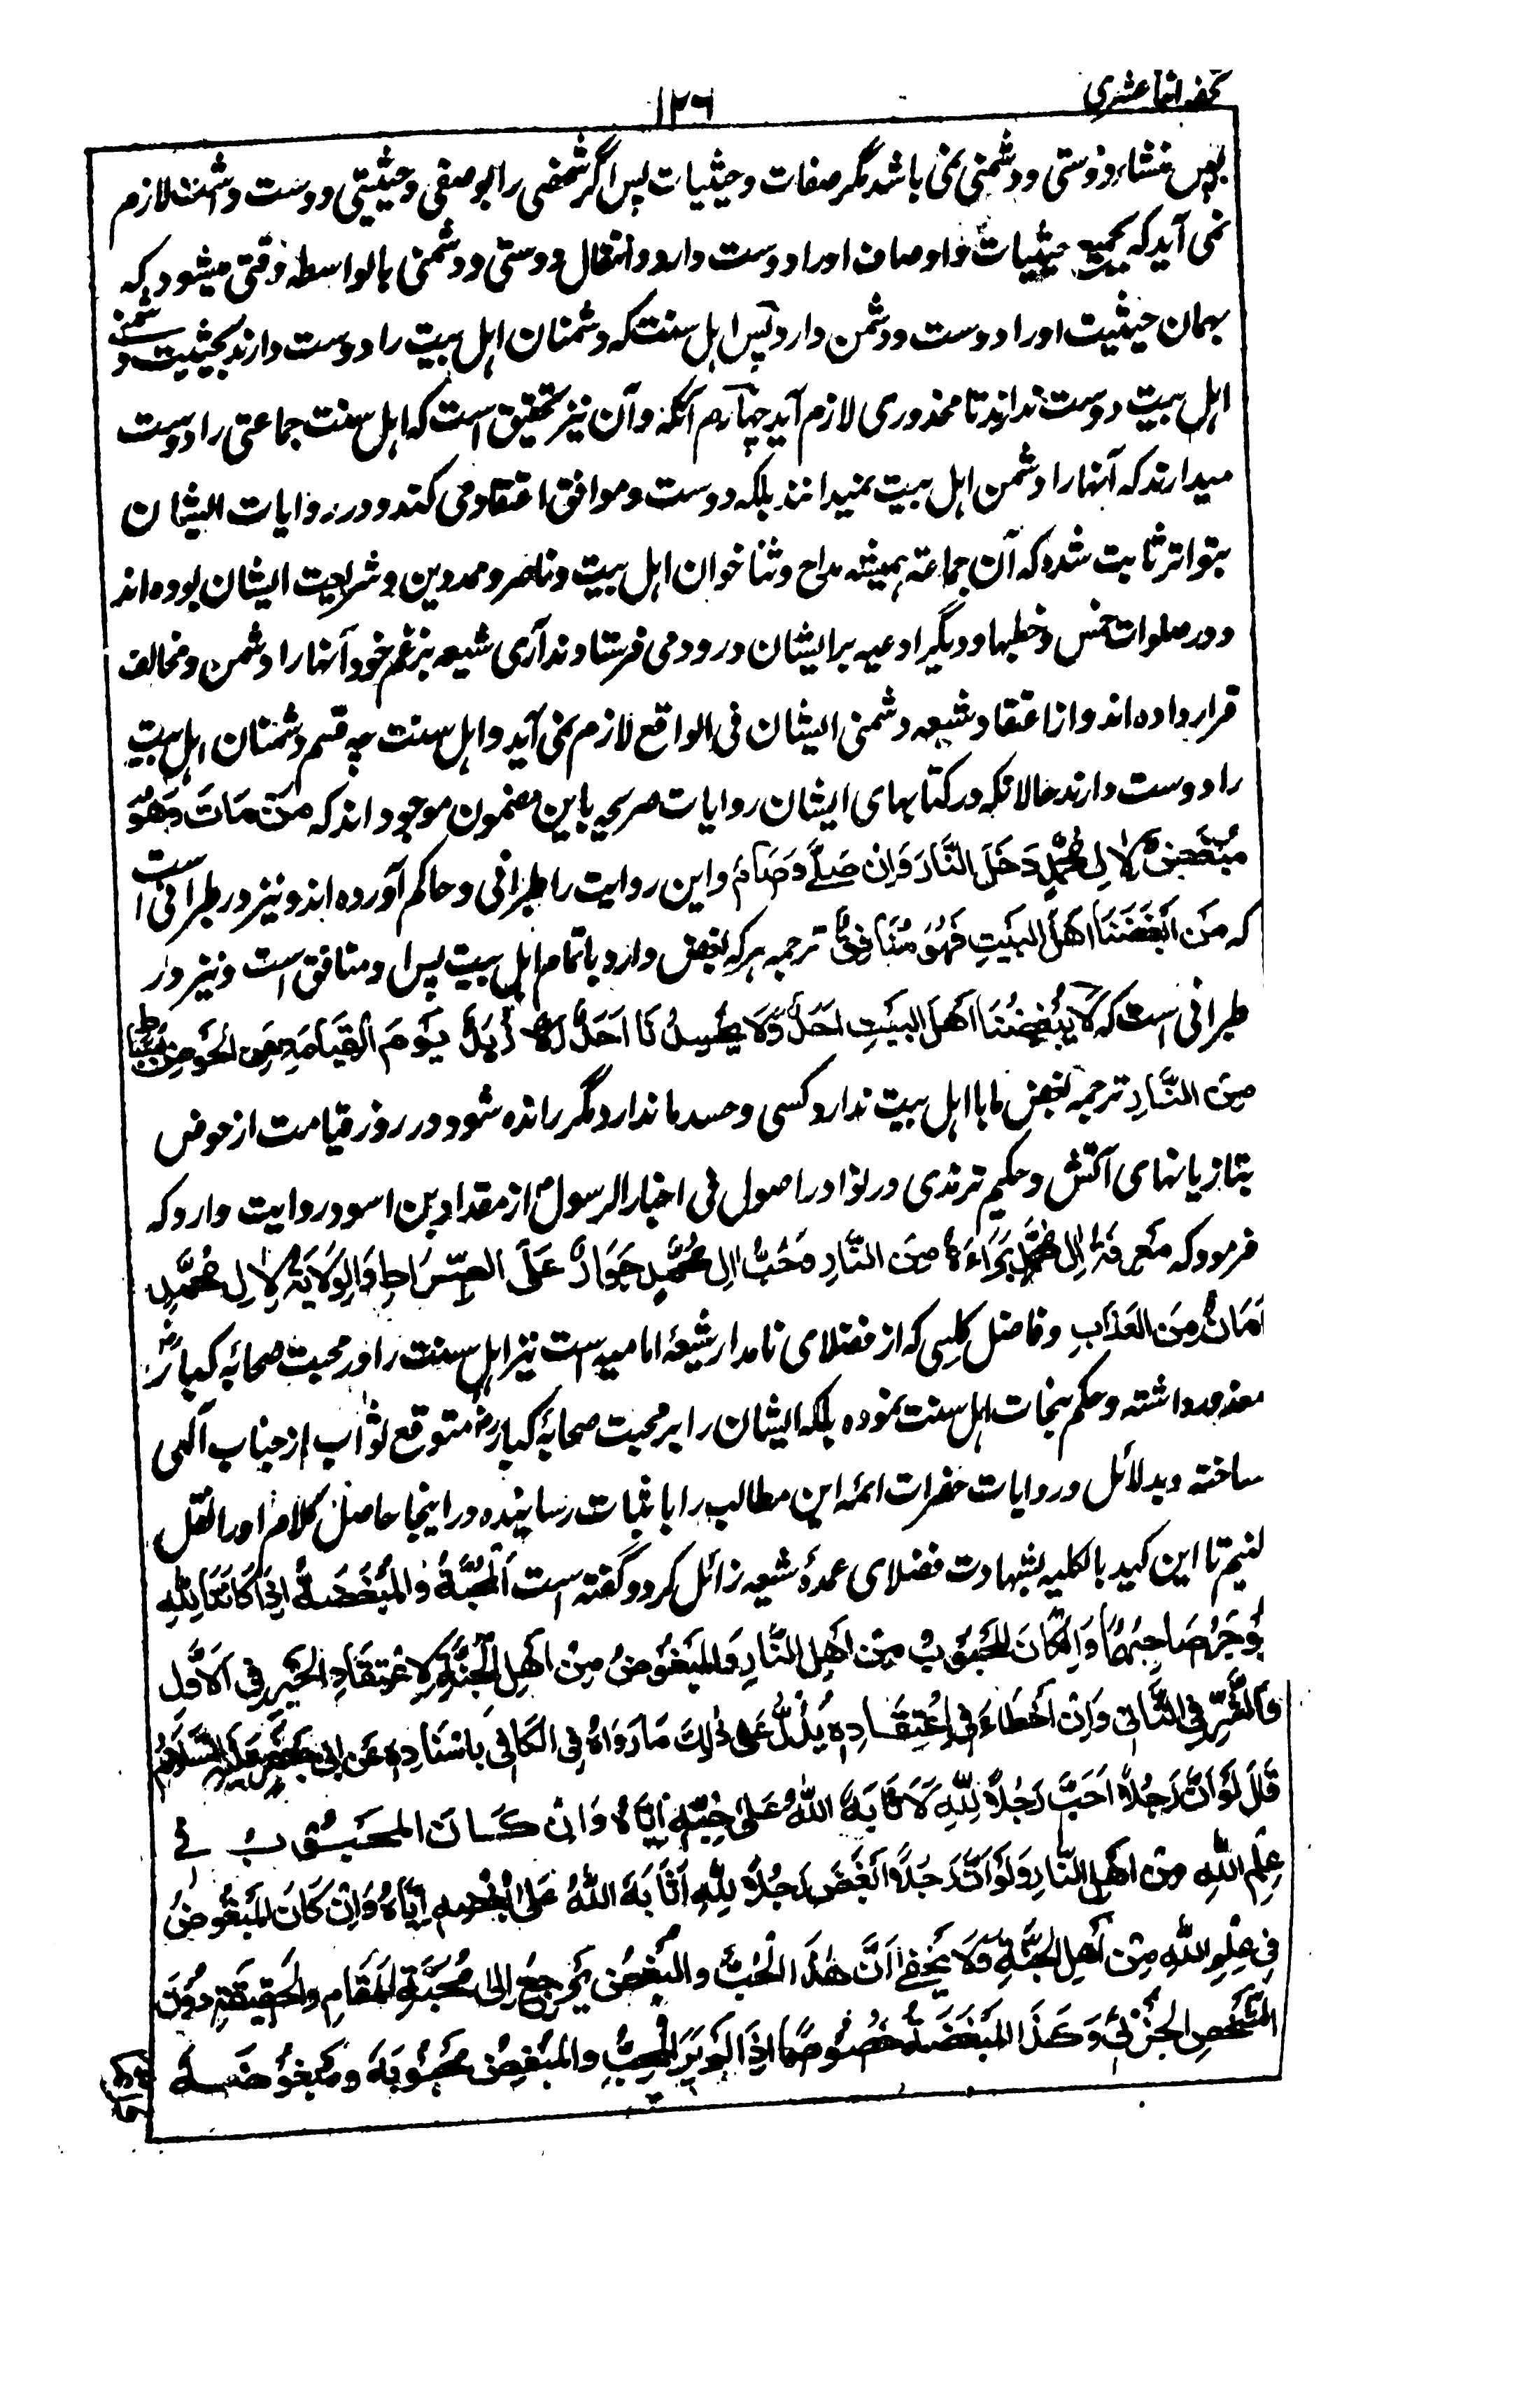 تحفه اثنا عشری
۱۲۶
پس منشاء دوستی و دشمنی نمی باشد مگر صفات و حیثیات پس اگر شخصی را بوصفی و حیثیتی دوست داشتند لازم
نمی آید که بجمیع حیثیات و اوصاف او را دوست دارد و انتقال دوستی و دشمنی بالواسطه وقتی میشود که
بهمان حیثیت او را دوست و دشمن دارد پس اہل سنت که دشمنان اہل بیت را دوست دارند بحیثیت دشمنی
اہل بیت دوست ندارند تا محذوری لازم آید چہارم آنکه و آن نیز تحقیق است که اہل سنت جماعتی را دوست
میدارند که آنها را دشمن اہل بیت نمیدانند بلکه دوست و موافق اعتقاد می کنند و در روایات ایشان
بتواتر ثابت شده که آن جماعه ہمیشه مداح و ثنا خوان اہل بیت و ناصر و ممد دین و شریعت ایشان بوده اند
و در صلوات خمس و خطبها و دیگر ادعیه بر ایشان درود می فرستادند آری شیعه بزعم خود آنها را دشمن و مخالف
قرار داده اند و از اعتقاد شیعه دشمنی ایشان فی الواقع لازم نمی آید و اہل سنت چه قسم دشمنان اہل بیت
را دوست دارند حالانکه در کتابهای ایشان روایات صریحه باین مضمون موجود اند که مَنْ مَاتَ وَهُوَ
مُبْغِضٌ لِاٰلِ مُحَمَّدٍ دَخَلَ النَّارَ وَاِنْ صَلّٰے وَصَامَ و این روایت را طبرانی و حاکم آورده اند و نیز در طبرانی است
که مَنْ اَبْغَضَنَا اَهْلَ الْبَيْتِ فَهُوَ مُنَافِقٌ ترجمه ہر که بغض دارد با تمام اہل بیت پس او منافق است و نیز در
طبرانی است که لَا يُبْغِضُنَا اَهْلَ الْبَيْتِ اَحَدٌ وَّلَا يَحْسِدُنَا اَحَدٌ اِلَّا زِيْدَ يَوْمَ الْقِيَامَةِ عَنِ الْحَوْضِ بِسِيَاطٍ
مِنَ النَّارِ ترجمه بغض ما با اہل بیت ندارد کسی و حسد ما ندارد مگر رانده شود در روز قیامت از حوض
بتازیانهای آتش و حکیم ترمذی در نوادر اصول فی اخبار الرسول از مقداد بن اسود روایت دارد که
فرمود که مَعْرِفَةُ اٰلِ مُحَمَّدٍ بَرَاءَةٌ مِنَ النَّارِ وَحُبُّ اٰلِ مُحَمَّدٍ جَوَازٌ عَلَى الصِّرَاطِ وَالْوِلَايَةُ لِاٰلِ مُحَمَّدٍ
اَمَانٌ مِنَ الْعَذَابِ و فاضل کلسی که از فضلای نامدار شیعهٔ امامیه است نیز اہل سنت را در محبت صحابهٔ کبار رض
معذور داشته و حکم بنجات اہل سنت نموده بلکه ایشان را بر محبت صحابهٔ کبار رض متوقع ثواب از جناب آلهی
ساخته و بدلائل و روایات حضرات ائمه این مطالب را باثبات رسانیده در اینجا حاصل کلام او را نقل
کنیم تا این کید بالکلیه بشهادت فضلای عمدهٔ شیعه زائل گردد گفته است اَلْمَحَبَّةُ وَالْمُبْغَضَةُ اِذَا كَانَتَا لِلّٰهِ
يُوْجَرُ صَاحِبُهُمَا وَاِنْ كَانَ الْمَحْبُوْبُ مِنْ اَهْلِ النَّارِ وَالْمَبْغُوْضُ مِنْ اَهْلِ الْجَنَّةِ لِاعْتِقَادِ الْخَيْرِ فِى الْاَوَّلِ
وَالشَّرِّ فِى الثَّانِى وَاِنْ اَخْطَاءَ فِى اِعْتِقَادِهٖ يَدُلُّ عَلٰى ذٰلِكَ مَا رَوَاهُ فِى الْكَافِى بِاِسْنَادِهٖ عَنْ اَبِى جَعْفَرٍ عَلَيْهِ السَّلَامُ
قَالَ لَوْ اَنَّ رَجُلًا اَحَبَّ رَجُلًا لِلّٰهِ لَاَثَابَهُ اللّٰهُ عَلٰى حُبِّهٖ اِيَّاهُ وَاِنْ كَانَ الْمَحْبُوْبُ فِے
عِلْمِ اللّٰهِ مِنْ اَهْلِ النَّارِ وَلَوْ اَنَّ رَجُلًا اَبْغَضَ رَجُلًا لِلّٰهِ اَثَابَهُ اللّٰهُ عَلٰى بُغْضِهٖ اِيَّاهُ وَاِنْ كَانَ الْمَبْغُوْضُ
فِى عِلْمِ اللّٰهِ مِنْ اَهْلِ الْجَنَّةِ وَلَا يَخْفٰے اَنَّ هٰذَا الْحُبَّ وَالْبُغْضَ يَرْجِعُ اِلٰى مَحَبَّةِ الْمَقَامِ وَالْحَقِيْقَةِ دُوْنَ
الشَّخْصِ الْجُزْئِىِّ وَكَذَا الْمُبْغَضَةُ خُصُوْصًا اِذَا لَمْ يَرَ الْمُحِبُّ وَالْمُبْغِضُ مَحْبُوْبَهُ وَمَبْغُوْضَهُ